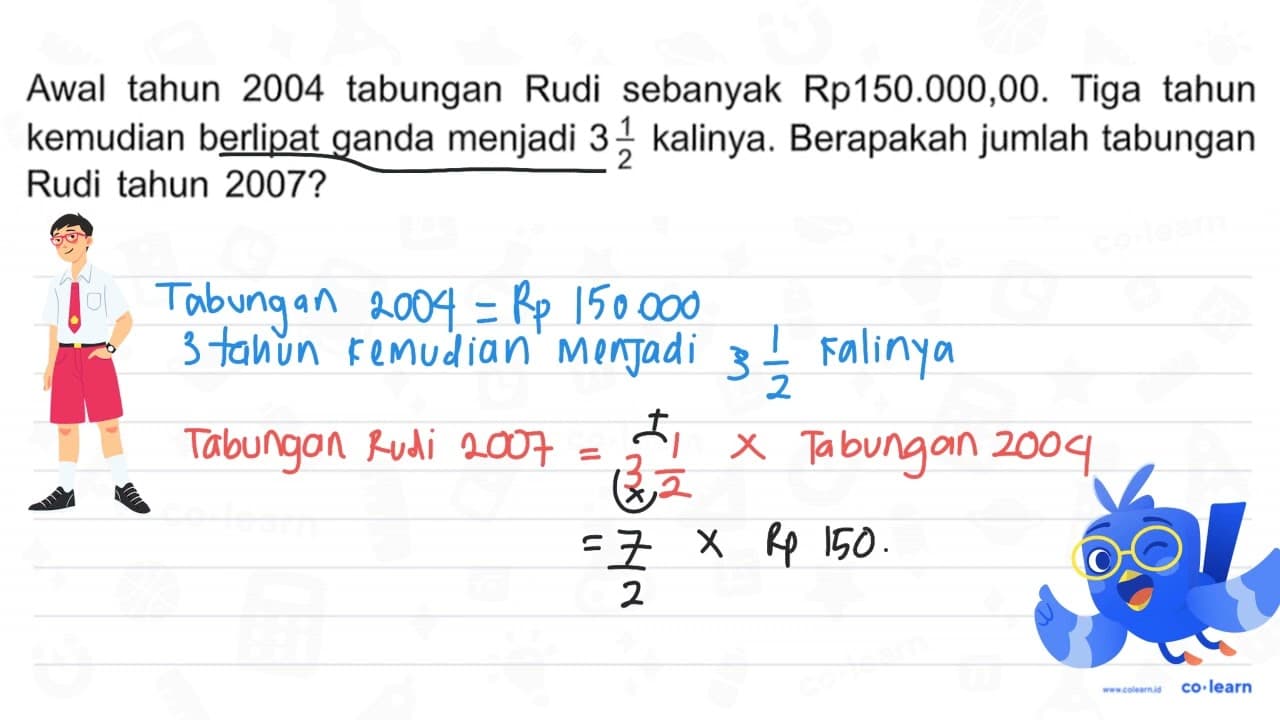 Awal tahun 2004 tabungan Rudi sebanyak Rp150.000,00. Tiga tahun
kemudian berlipat ganda menjadi 3 1/2 kalinya. Berapakah jumlah tabungan
Rudi tahun 2007?
Tabungan 2004 = Rp 150.000
3 tahun kemudian menjadi 3 1/2 kalinya
Tabungan Rudi 2007 = 3 1/2 x Tabungan 2004
+
x
= 7/2 x Rp 150.
www.colearn.id co·learn